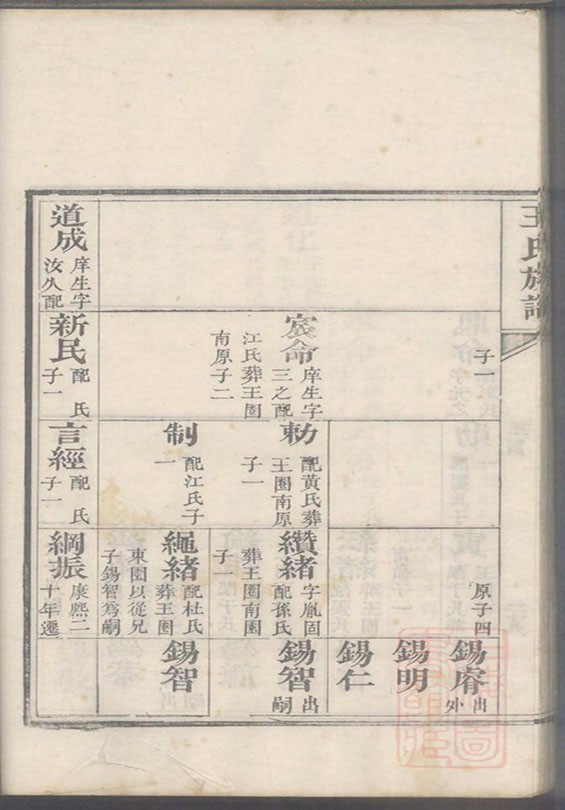 王氏族譜
子一
宸命
庠生字
三之配
江氏葬王園
南原子二
道成
庠生字
汝久配
新民
配 氏
子一
勅
配黃氏葬
王園南原
子一
制
配江氏子
一
言經
配 氏
子一
原子四
纘緒
字胤固
配孫氏
葬王園南園
子一
繩緒
配杜氏
葬王園
東園以從兄
子錫智爲嗣
綱振
康熙二
十年遷
錫睿
出
外
錫明
錫仁
錫智
出
嗣
錫智